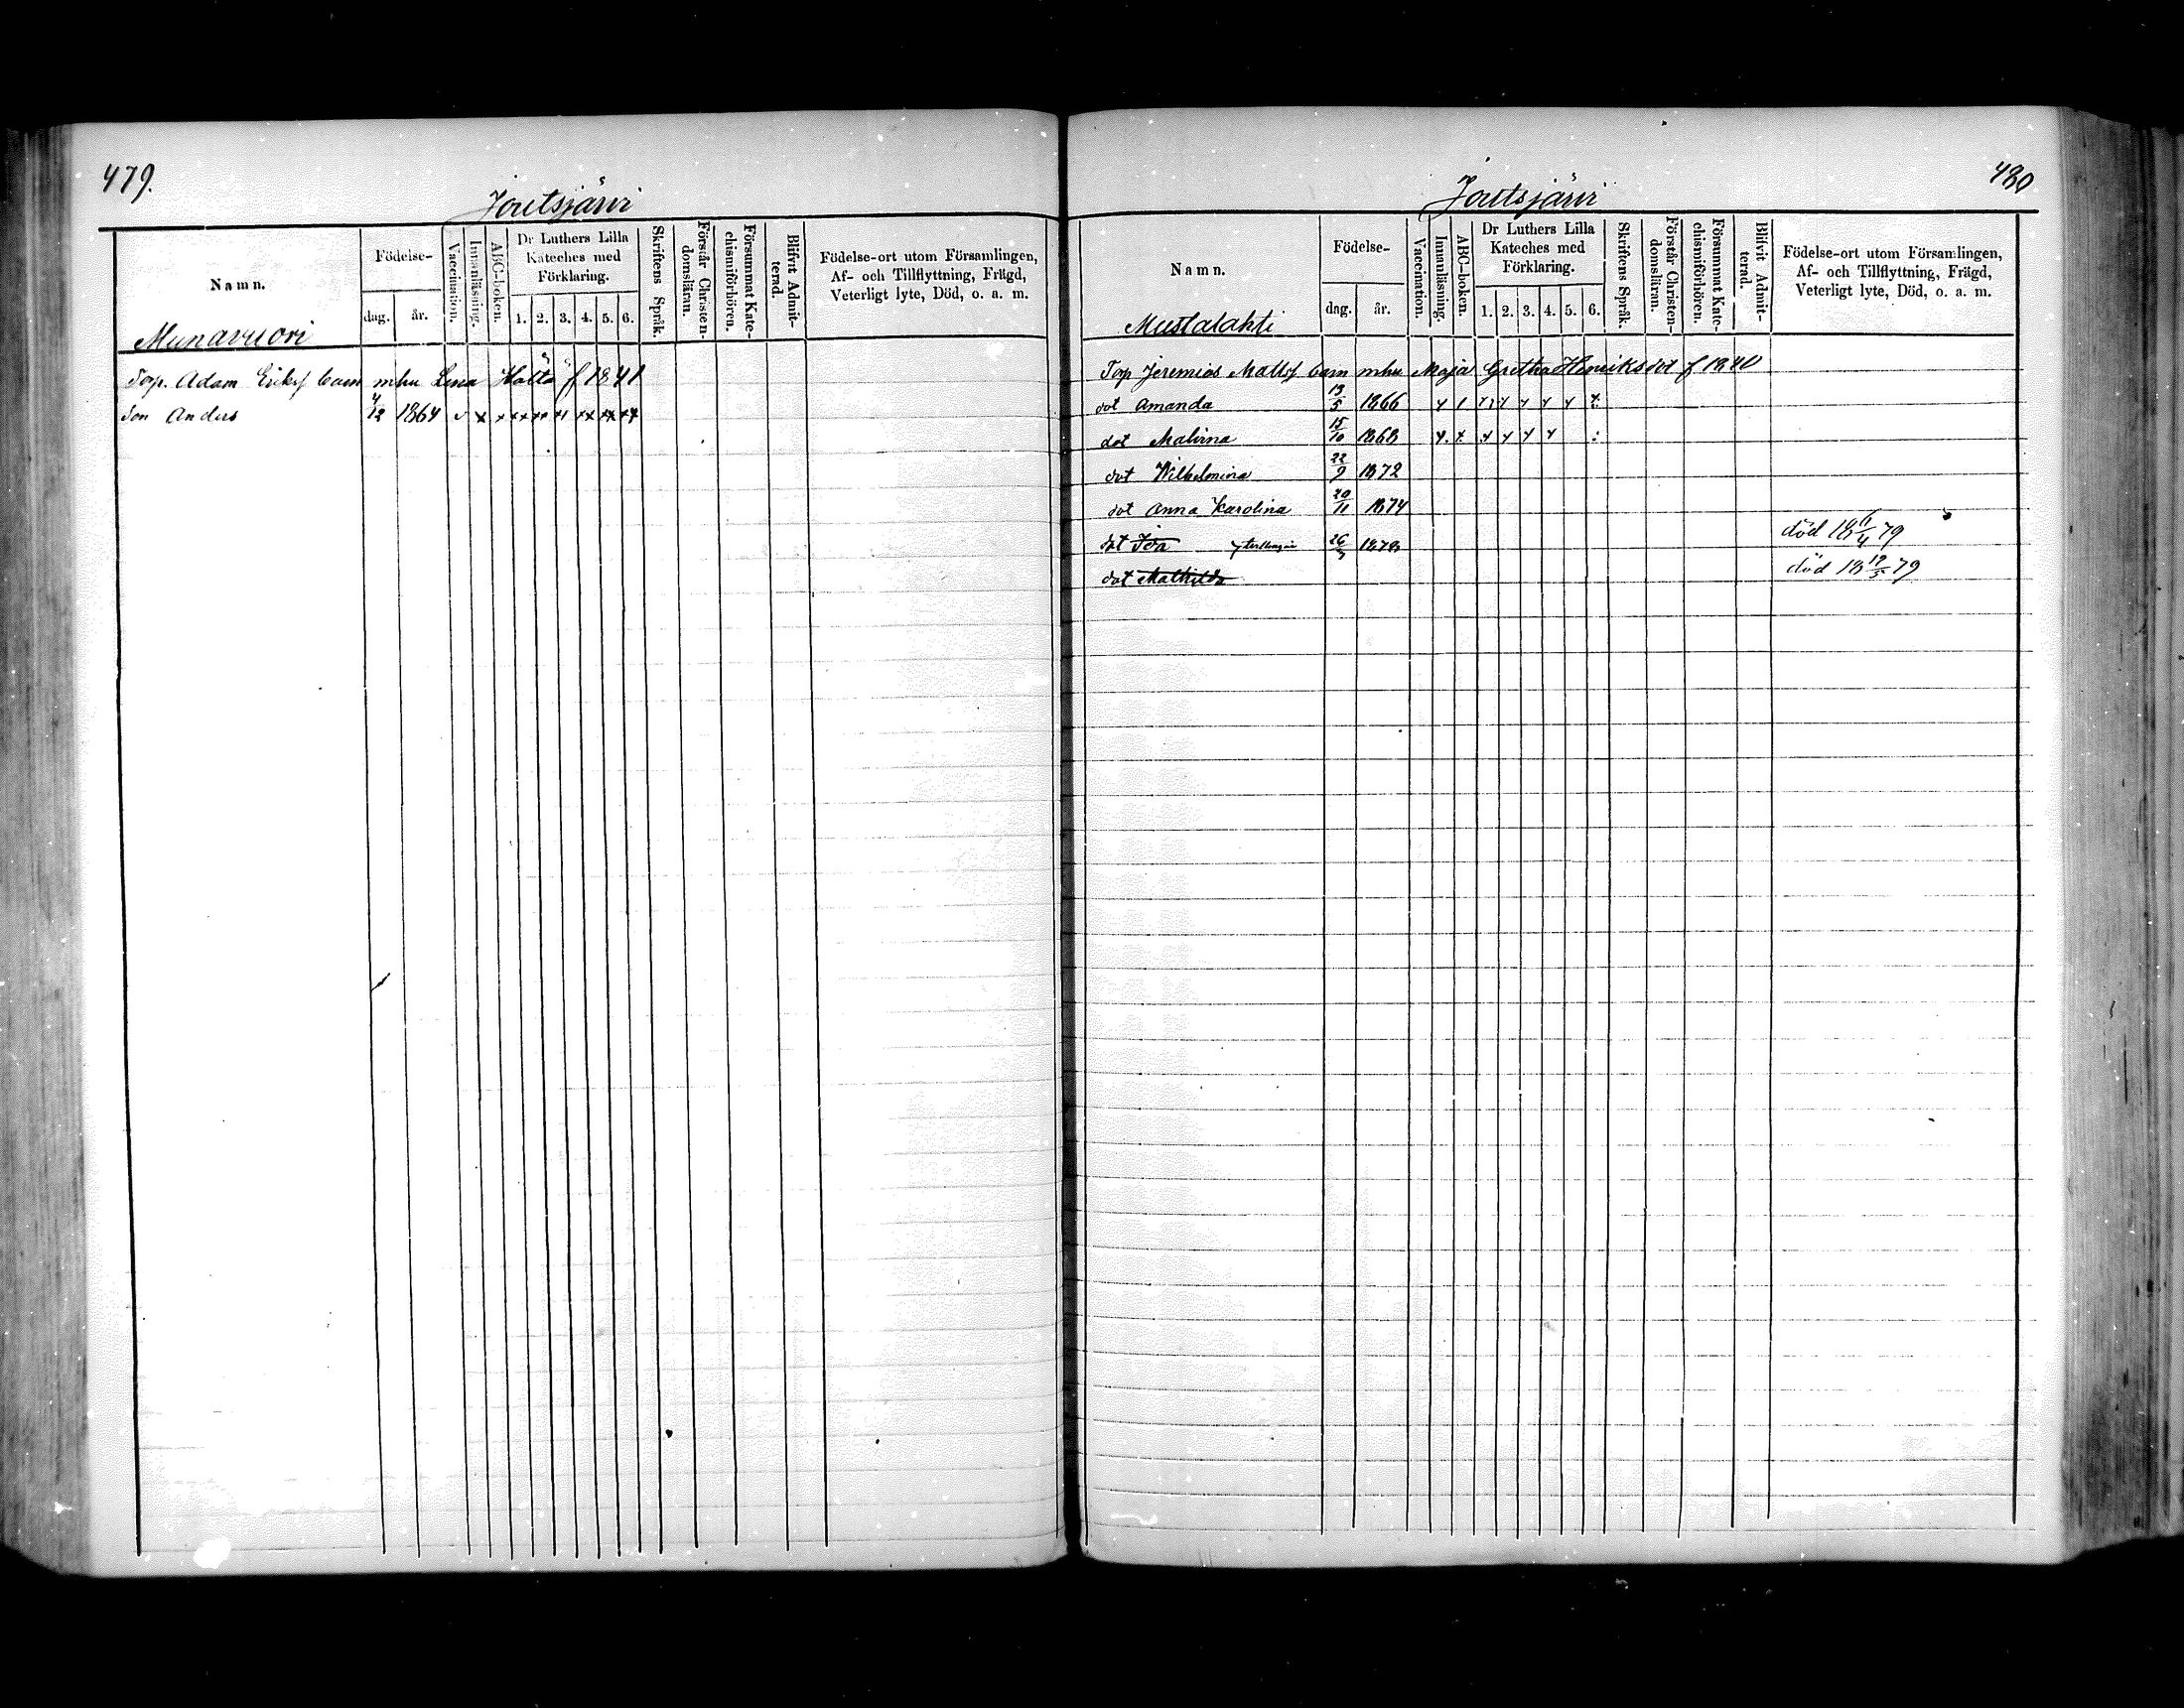 479.
Joutsjärvi
Namn.
Födelse-
dag.
år.
Vaccination.
Innanläsning.
ABC-boken.
Dr Luthers Lilla
Kateches med
Förklaring.
1. 2. 3. 4. 5. 6.
Skriftens Språk.
Förstår Christen-
domsläran.
Försummat Kate-
chismiförhören.
Blifvit Admit-
terad.
Födelse-ort utom Församlingen,
Af- och Tillflyttning, Frägd,
Veterligt lyte, Död, o. a. m.
Munavuori
Torp. Adam Eriks barn m hu Lena f 1841
Son Anders 4/12 1864
480
Joutsjärvi
Namn.
Födelse-
dag.
år.
Vaccination.
Innanläsning.
ABC-boken.
Dr Luthers Lilla
Kateches med
Förklaring.
1. 2. 3. 4. 5. 6.
Skriftens Språk.
Förstår Christen-
domsläran.
Försummat Kate-
chismiförhören.
Blifvit Admit-
terad.
Födelse-ort utom Församlingen,
Af- och Tillflyttning, Frägd,
Veterligt lyte, Död, o. a. m.
Mustalahti
Torp Jeremias Matts barn m hu Maja Gretha Henriksdot f 1840
dot Amanda 13/5 1866
dot Malvina 15/10 1868
dot Wilhelmina 22/9 1872
dot Anna Karolina 20/11 1874
dot Ida 1878 död 18 6/4 79
dot Mathilda död 18 12/5 79